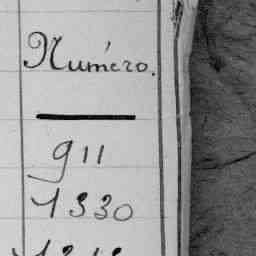 Numéro.
911
1330